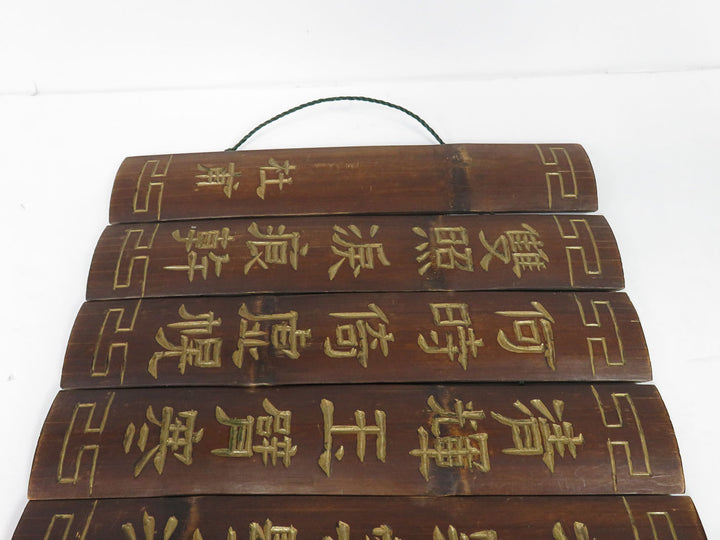 杜甫
雙照淚痕乾
何時倚虛幌
清輝玉臂寒